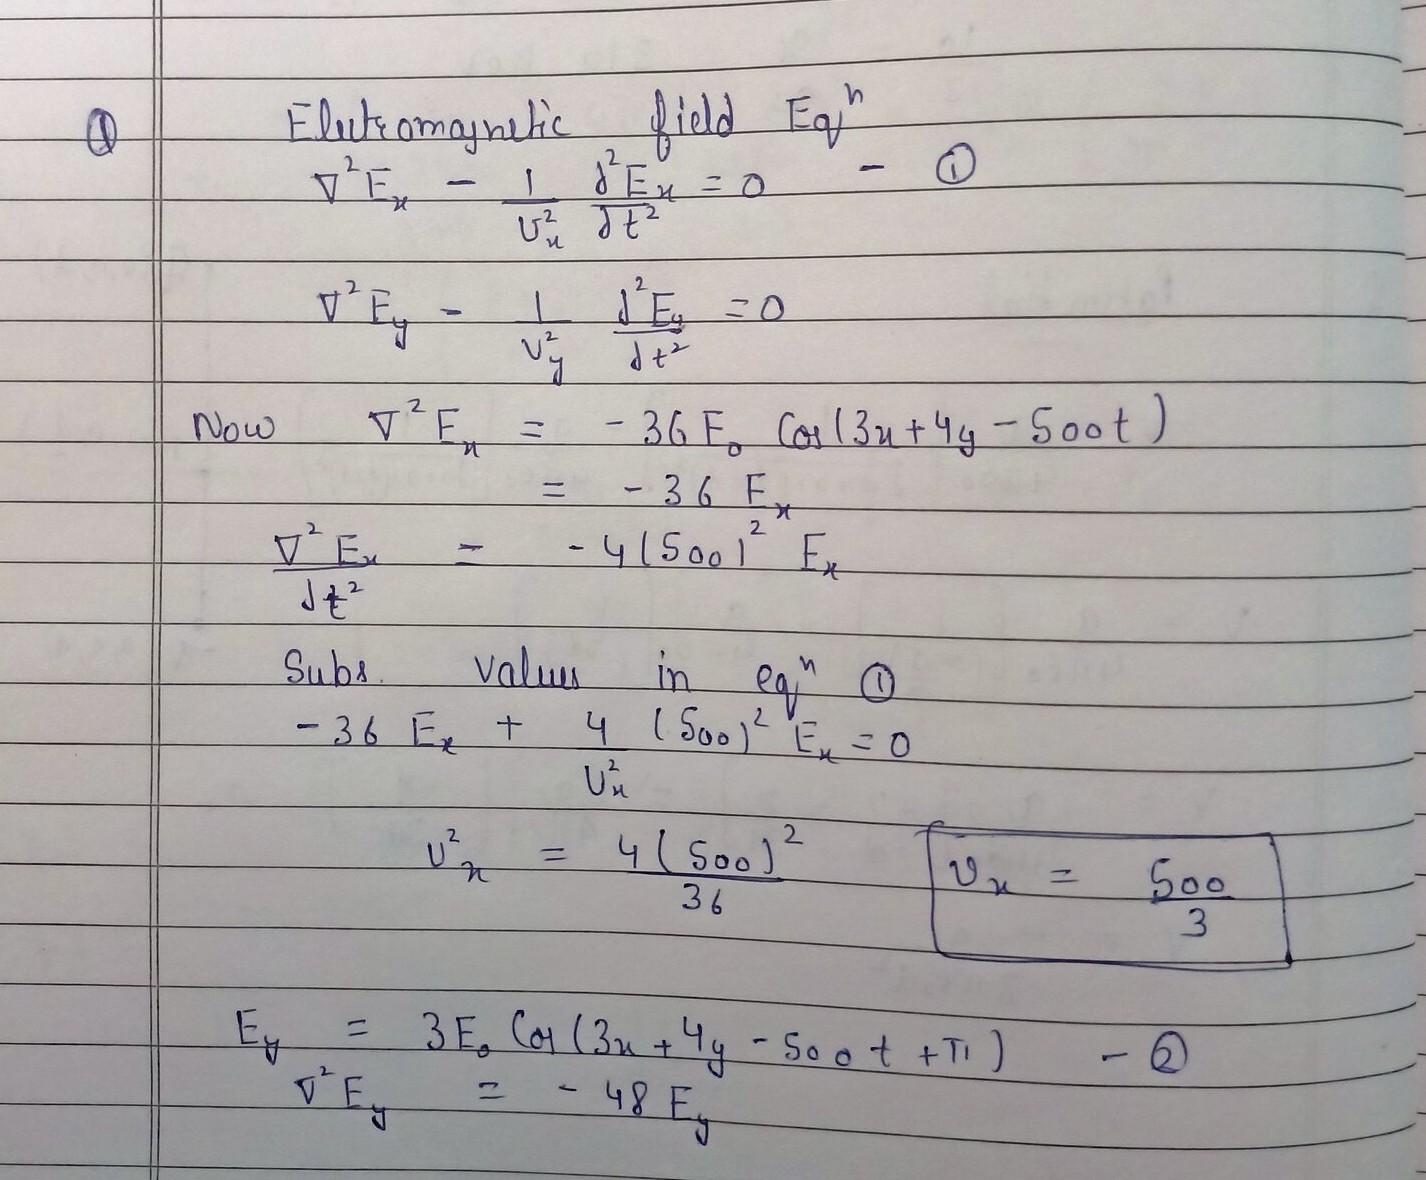 ① Electromagnetic field Eqⁿ
∇²Eₓ - 1/vₓ² ∂²Eₓ/∂t² = 0 - ①
∇²E_y - 1/v_y² ∂²E_y/∂t² = 0
Now ∇²Eₓ = -36 E₀ Cos(3x+4y-500t)
= -36 Eₓ
∇²Eₓ/∂t² = -4(500)² Eₓ
Subs. values in eqⁿ ①
-36 Eₓ + 4/vₓ² (500)² Eₓ = 0
vₓ² = 4(500)²/36 vₓ = 500/3
E_y = 3E₀ Cos(3x+4y-500t+π) - ②
∇²E_y = -48 E_y